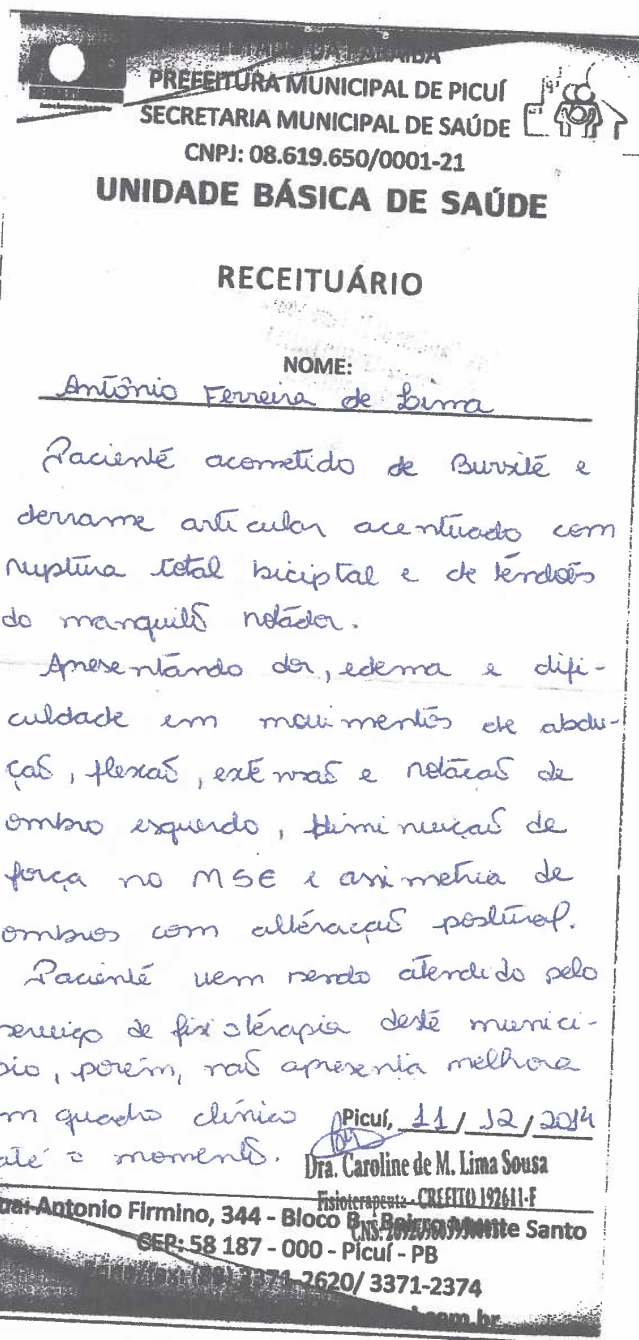 ESTADO DA PARAÍBA
PREFEITURA MUNICIPAL DE PICUÍ
SECRETARIA MUNICIPAL DE SAÚDE
CNPJ: 08.619.650/0001-21
UNIDADE BÁSICA DE SAÚDE
RECEITUÁRIO
NOME:
Antônio Ferreira de Lima
Paciente acometido de Bursite e
derrame articular acentuado com
ruptura total biciptal e de tendões
do manguito rotador.
Apresentando dor, edema e difi-
culdade em movimentos de abdu-
ção, flexão, extensão e rotação de
ombro esquerdo, diminuição de
força no MSE e assimetria de
ombros com alteração postural.
Paciente vem sendo atendido pelo
serviço de fisioterapia deste municí-
pio, porém, não apresenta melhora
em quadro clínico
Picuí, 11/12/2014
até o momento.
Dra. Caroline de M. Lima Sousa
Fisioterapeuta - CREFITO 192611-F
CNS:
Antonio Firmino, 344 - Bloco B - Bairro Monte Santo
CEP: 58 187 - 000 - Picuí - PB
3371-2620/ 3371-2374